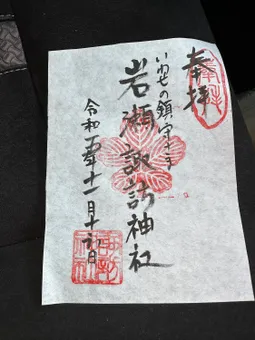 奉拝
いわせの鎮守さま
岩瀬諏訪神社
令和五年十一月十九日